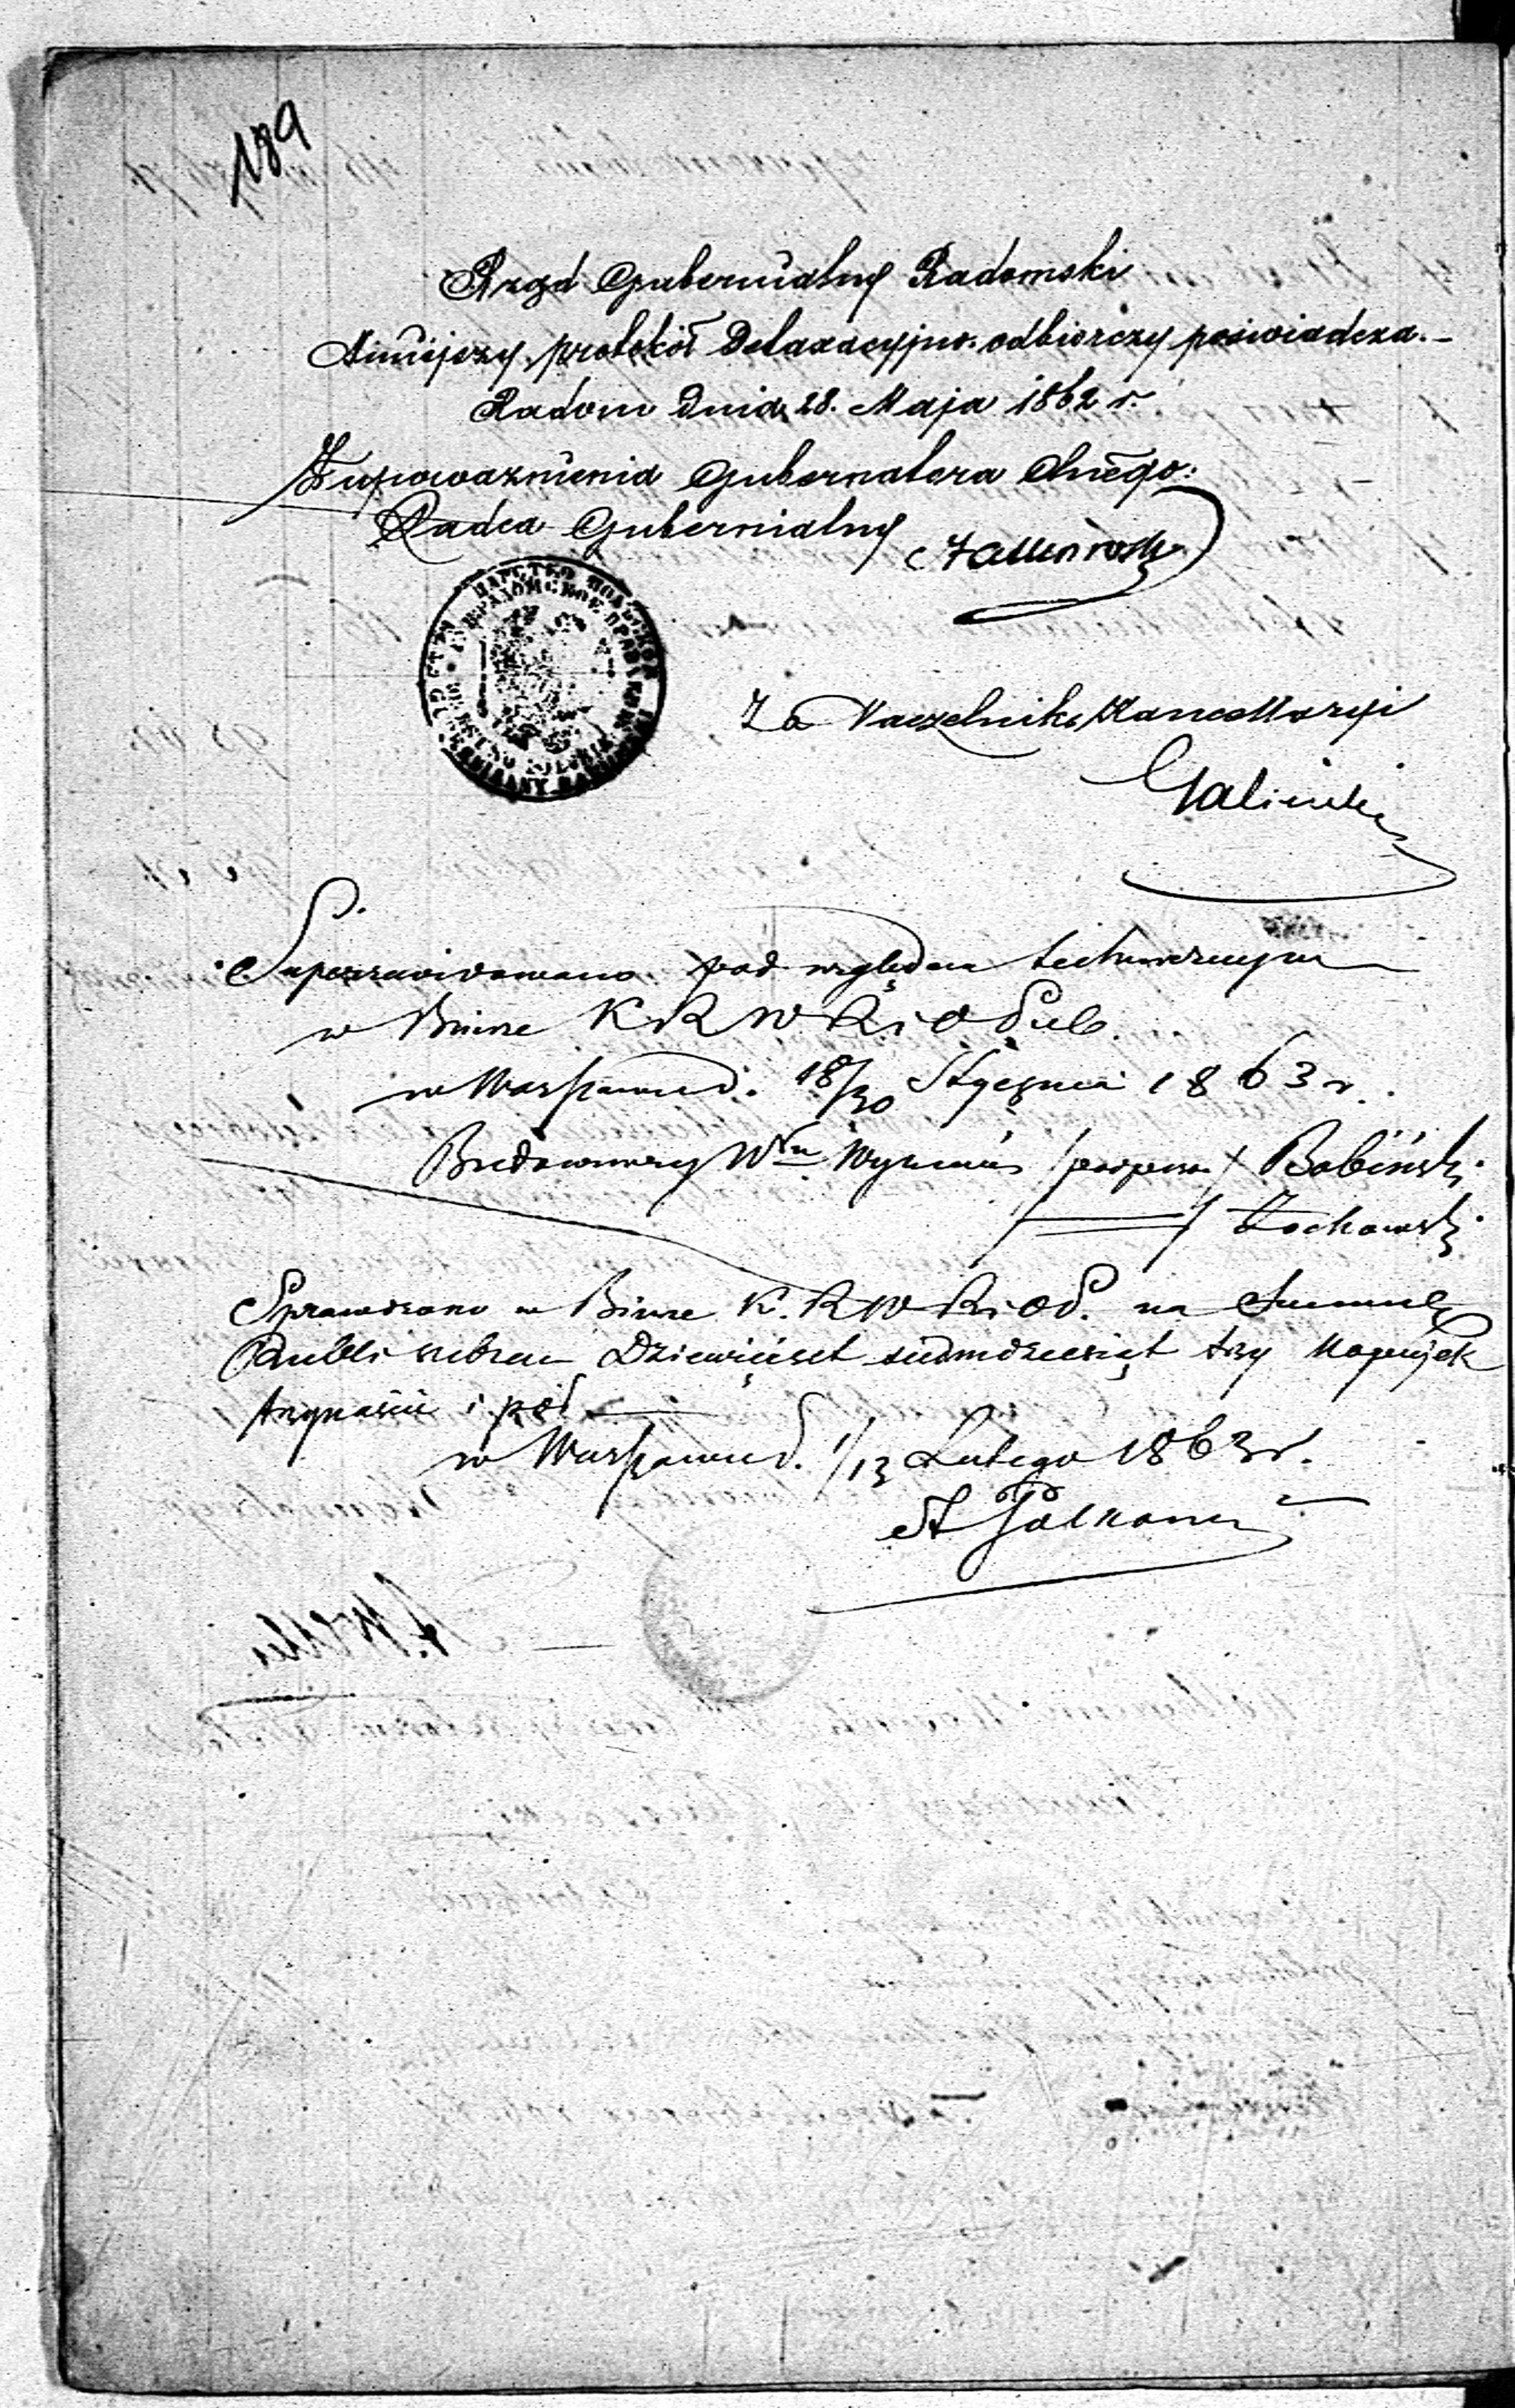 189
Rząd Gubernialny Radomski
Niniejszy protokół Detaxacyjno-odbiorczy poświadcza.-
Radom dnia 28. Maja 1862 r.
Z upoważnienia Gubernatora Cywnego:
Radca Gubernialny
Za Naczelnika Kancellaryi
Galiński
Superrewidowano pod względem technicznym
w Biurze K R W R i O Pub.
w Warszawie d. 18/30 Stycznia 1863 r.
Budowniczy /podpisan/ Bobiński
/ " / Żochowski
Sprawdzono w Biurze K. R W R i O P. na Summę
Rubli srebrem Dziewięćset siedmdziesiąt trzy Kopiejek
trzynaście i pół
w Warszawie d. 1/13 Lutego 1863 r.